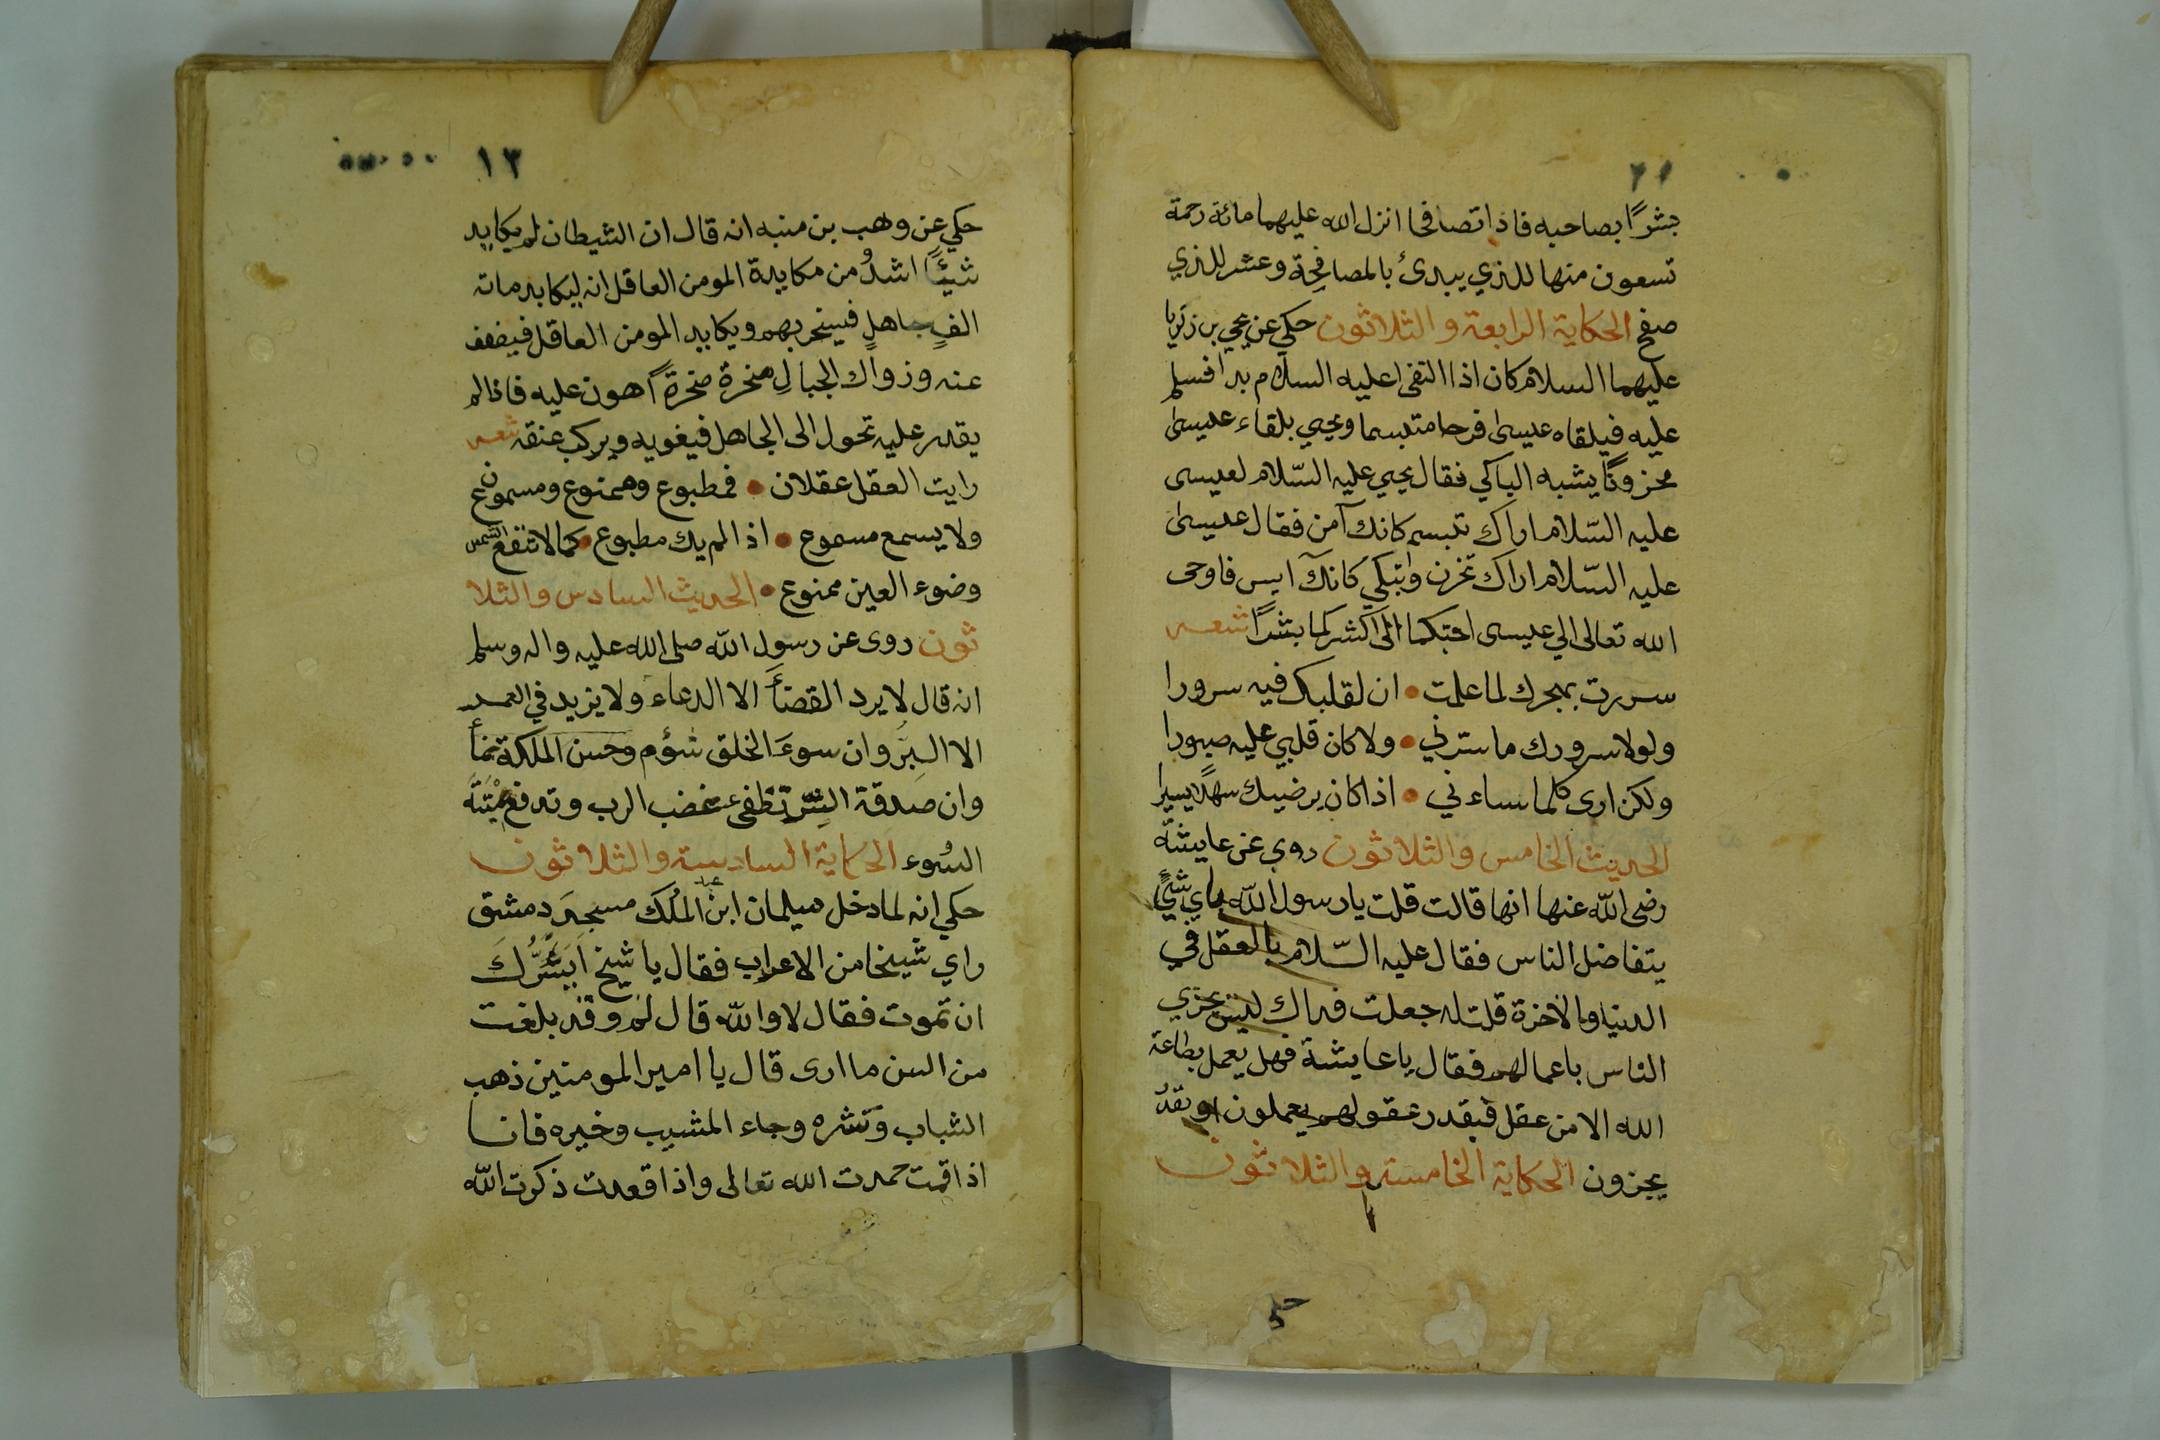 بشرًا بصاحبه فاذا تصافحا انزل الله عليهما مائة رحمة
تسعون منها للذي يبدئ بالمصافحة وعشر للذي
صفح الحكاية الرابعة والثلاثون حكي عن يحي بن زكريا
عليهما السلام كان اذا التقى عليه السلام بدا فسلم
عليه فيلقاه عيسى فرحا متبسما ويحيي بلقاء عيسى
محزونًا يشبه الباكي فقال يحيي عليه السّلام لعيسى
عليه السّلام اراك تبسم كانك آمن فقال عيسى
عليه السّلام اراك تحزن وتبكي كانك آيس فاوحى
الله تعالى الي عيسى احبكما الى اكثركما بشرًا شعـر
سررت بهجرك لما علمت • ان لقلبك فيه سرورا
ولولا سرورك ما سترني • ولا كان قلبي عليه صبورا
ولكن ارى كلما ساءني • اذا كان يرضيك سهلا يسيرا
الحديث الخامس والثلاثون روي عن عايشة
رضى الله عنها انها قالت قلت يا رسول الله باي شئ
يتفاضل الناس فقال عليه السّلام بالعقل في
الدنيا والآخرة قلت له جعلت فداك ليس يجزي
الناس باعمالهم فقال يا عايشة فهل يعمل بطاعة
الله الا من عقل فبقدر عقولهم يعملون او بقدر
يجزون الحكاية الخامسة والثلاثون
حكي
١٣
حكي عن وهب بن منبه انه قال ان الشيطان لم يكابد
شيئًا اشدُ من مكايدة المومن العاقل انه ليكابد ماتة
الفٍ جاهلٍ فيسخر بهم ويكابد المومن العاقل فيضعف
عنه وزواك الجبالِ صخرة صخرةً اهون عليه فاذا لم
يقدر عليه تحول الى الجاهل فيغويه ويركب عنقه شعـر
رايت العقل عقلان • فمطبوع وممنوع ومسموع
ولا يسمع مسموع • اذا لم يك مطبوع • كما لا تنفع الشمس
وضوء العين ممنوع • الحديث السادس والثلا
ثون روى عن رسول الله صلى الله عليه واله وسلم
انه قال لا يرد القضاء الا الدعاء ولا يزيد في العمـر
الا البِرُّ وان سوءَ الخلق شؤم وحسن الملكة نماء
وان صدقة السّرِ تطفى غضب الرب وتدفع مِيْتَة
السُوء الحكاية السادسة والثلاثون
حكي انه لما دخل سيلمان ابن عبد الملك مسجِدَ دمشق
راي شيخا من الاعراب فقال يا شيخ اَيَسُرُّكَ
ان تموت فقال لا والله قال لم وقد بلغت
من السن ما ارى قال يا امير المومنين ذهب
الشباب وشره وجاء المشيب وخيره فانا
اذا قمت حمدت الله تعالى واذا قعدت ذكرت الله